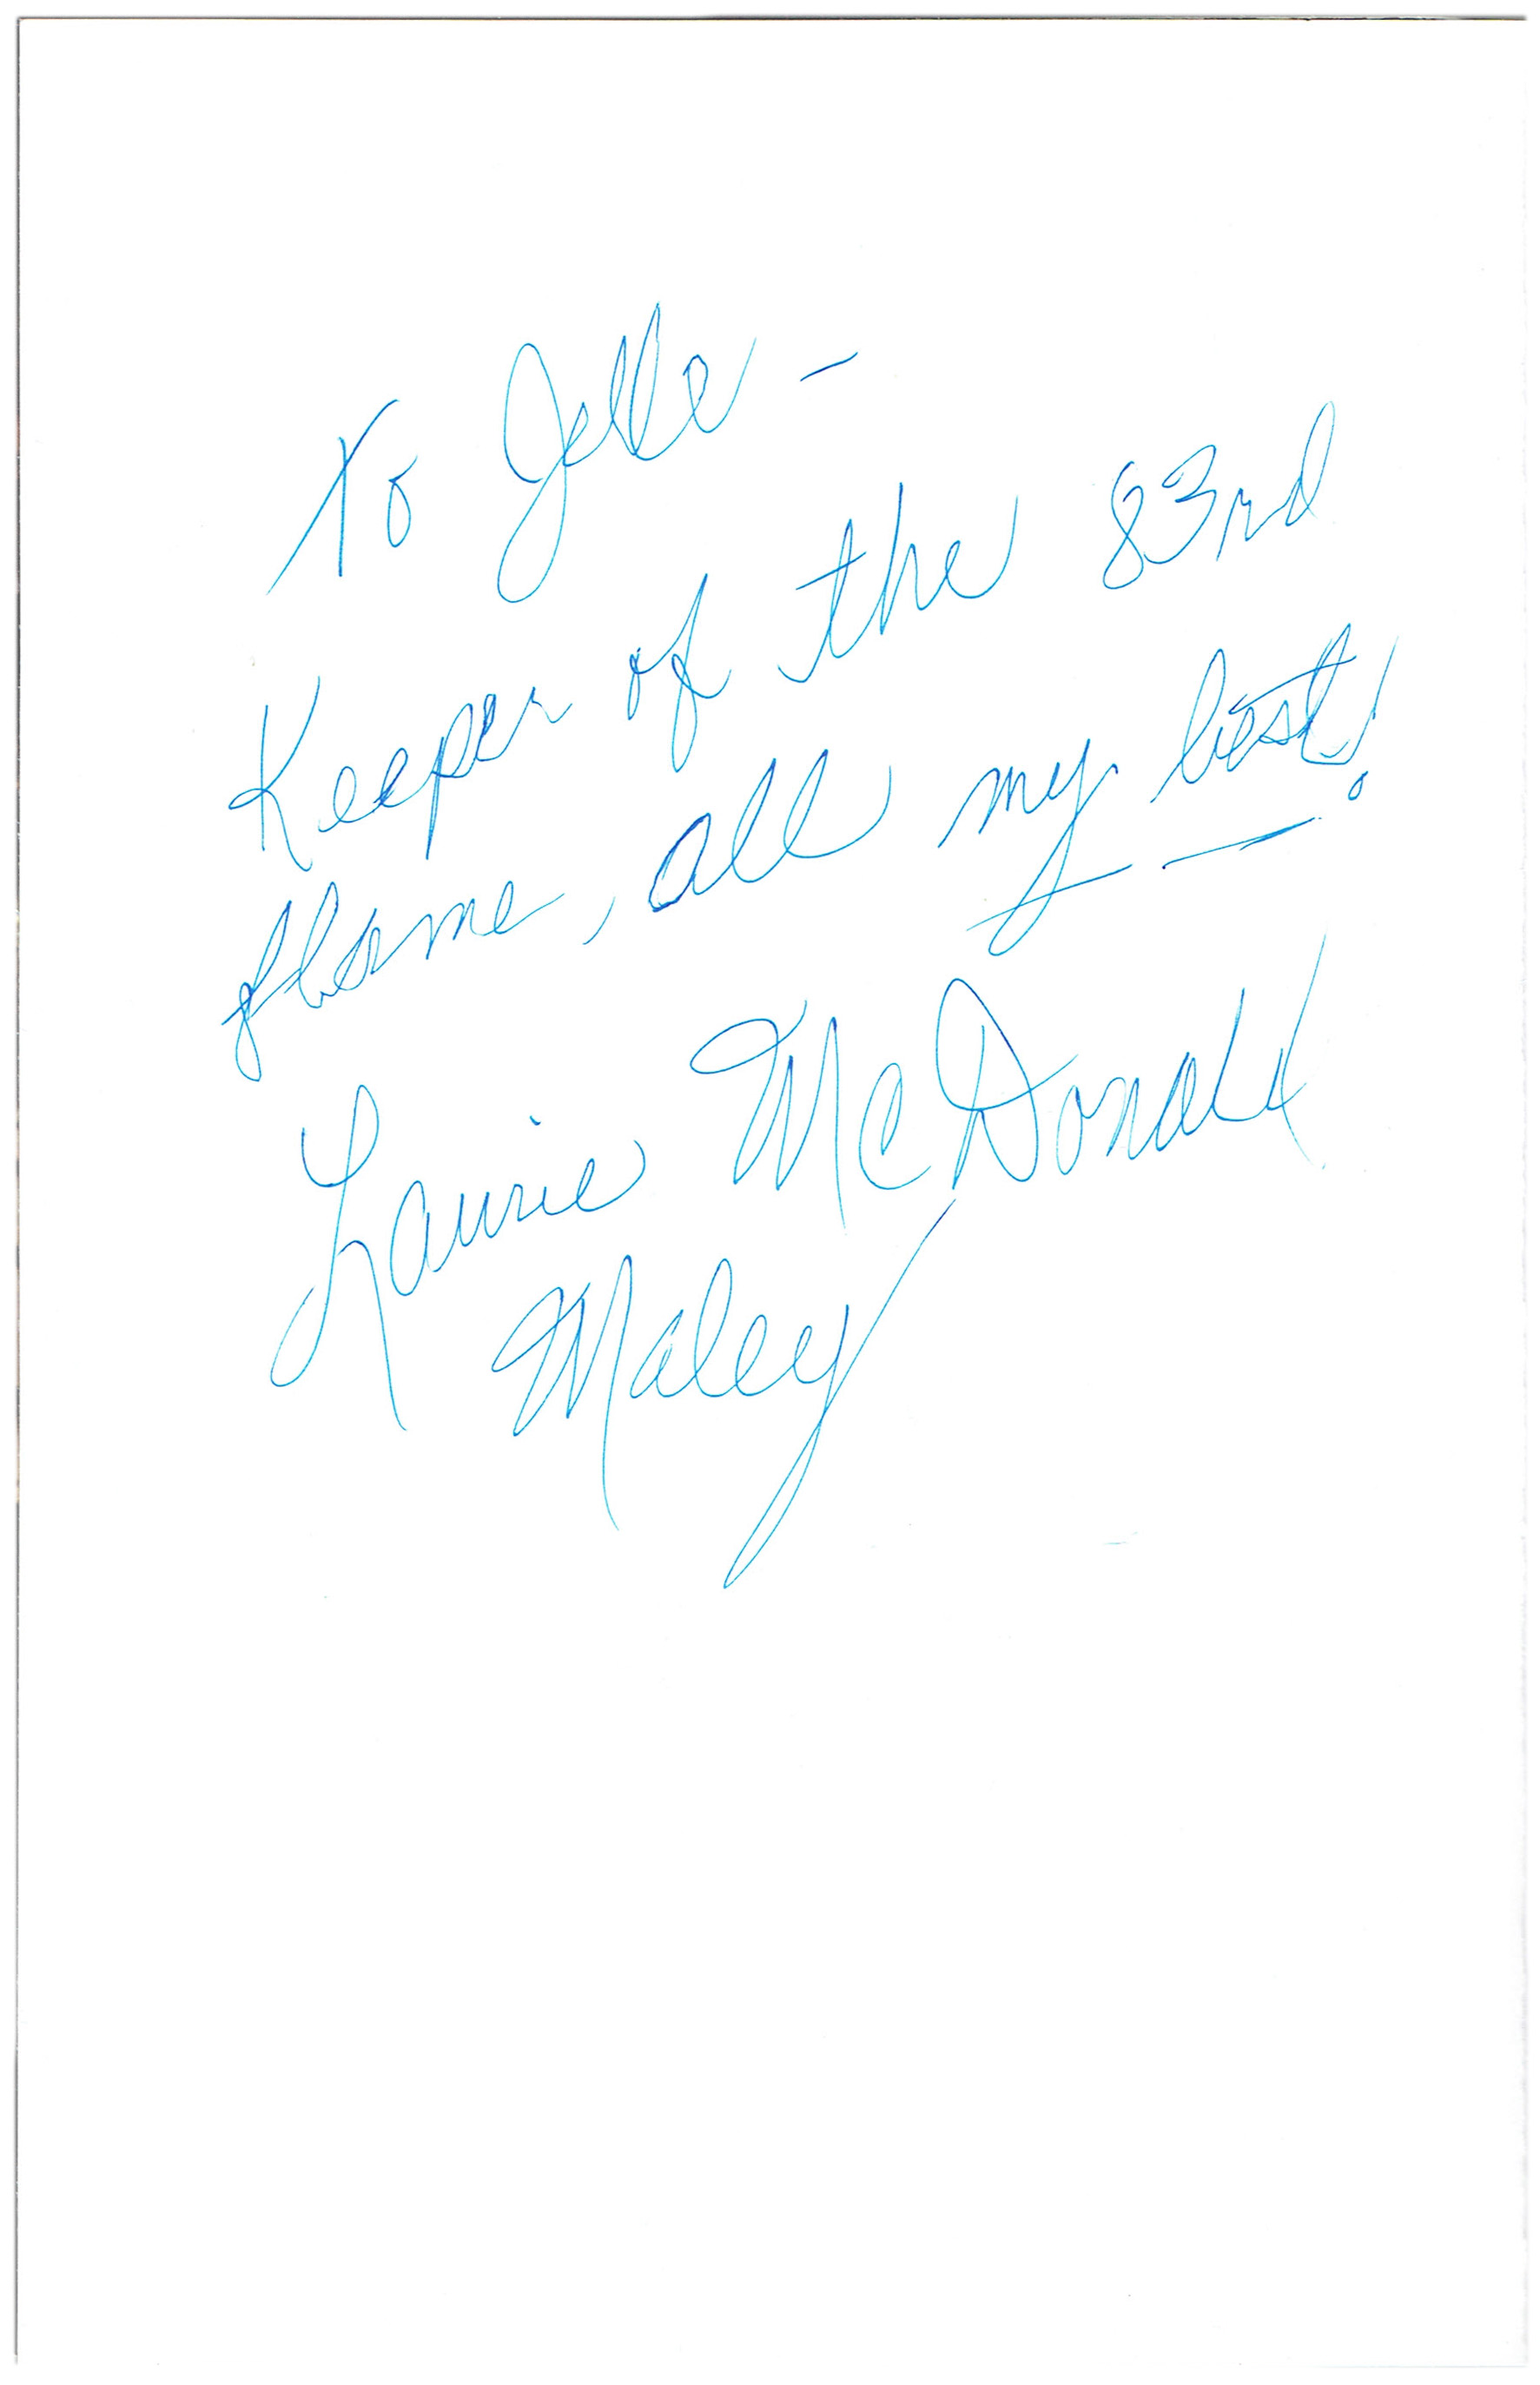 To Jelle -
Keeper of the 83rd
flame, all my best!
Laurie McDonald
Maley